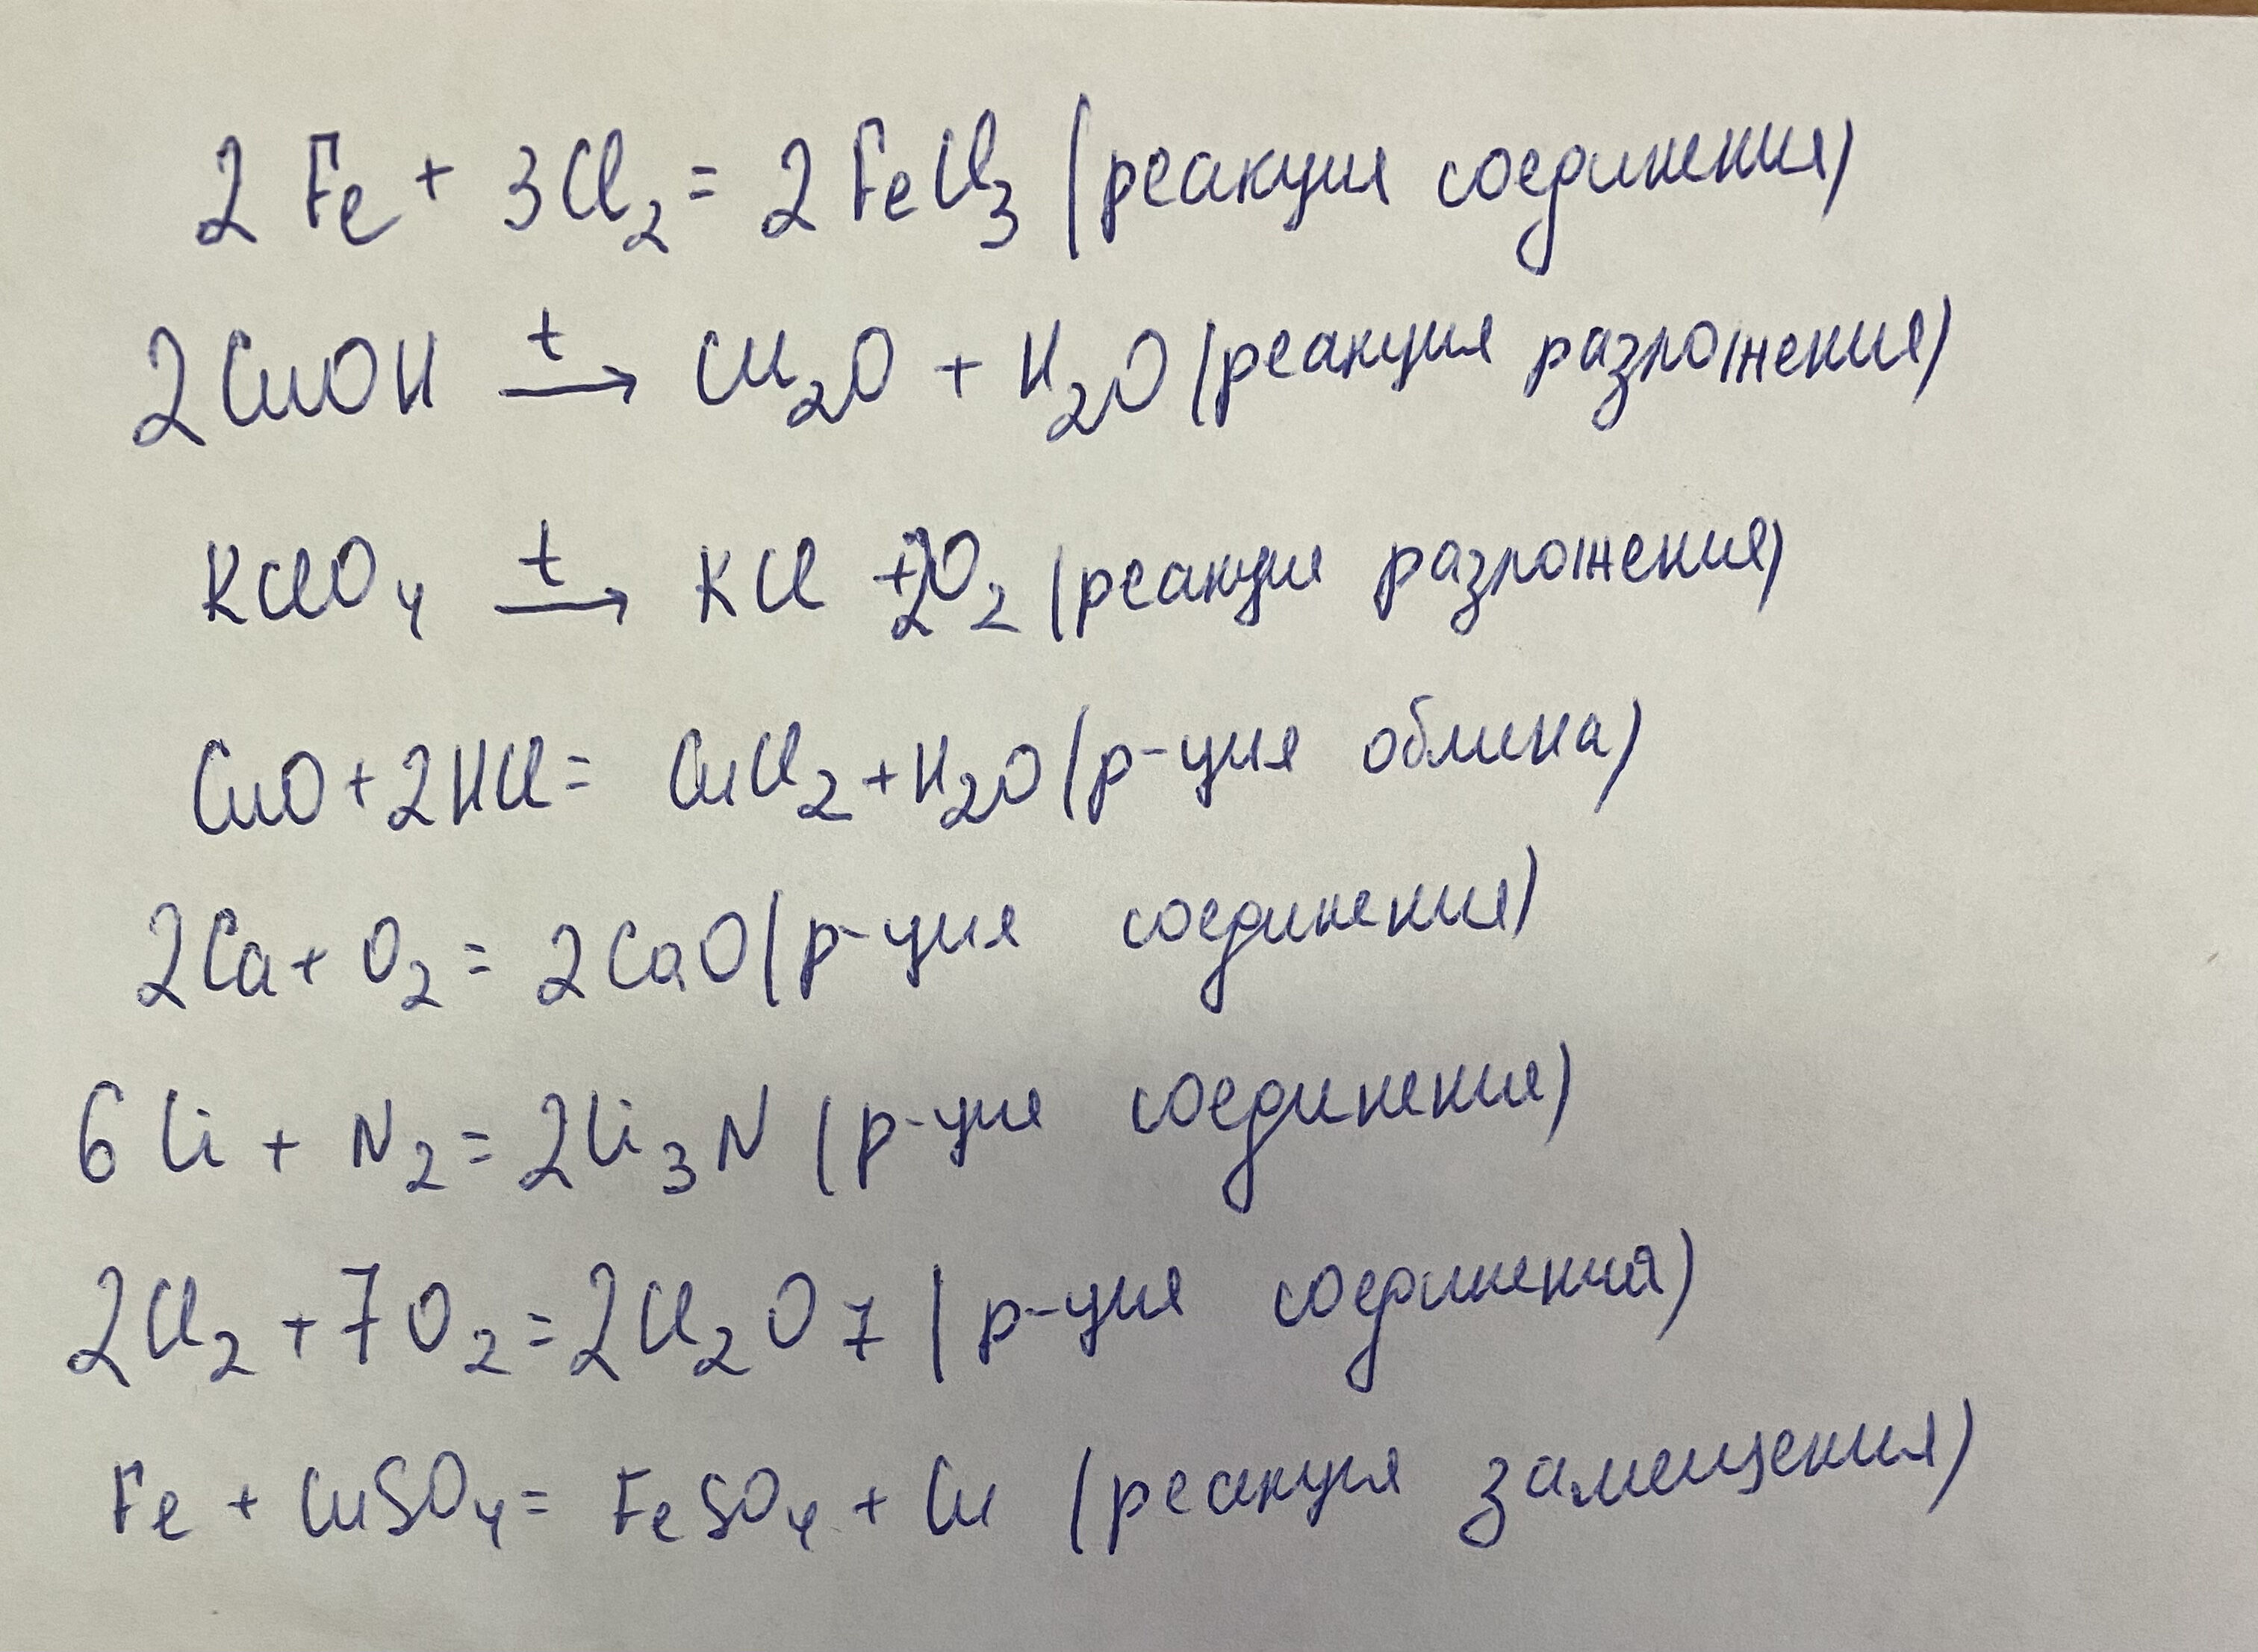 2Fe + 3Cl₂ = 2FeCl₃ (реакция соединения)
2CuOH t→ Cu₂O + H₂O (реакция разложения)
KClO₄ t→ KCl + 2O₂ (реакция разложения)
CuO + 2HCl = CuCl₂ + H₂O (р-ция обмена)
2Ca + O₂ = 2CaO (р-ция соединения)
6Li + N₂ = 2Li₃N (р-ция соединения)
2Cl₂ + 7O₂ = 2Cl₂O₇ (р-ция соединения)
Fe + CuSO₄ = FeSO₄ + Cu (реакция замещения)